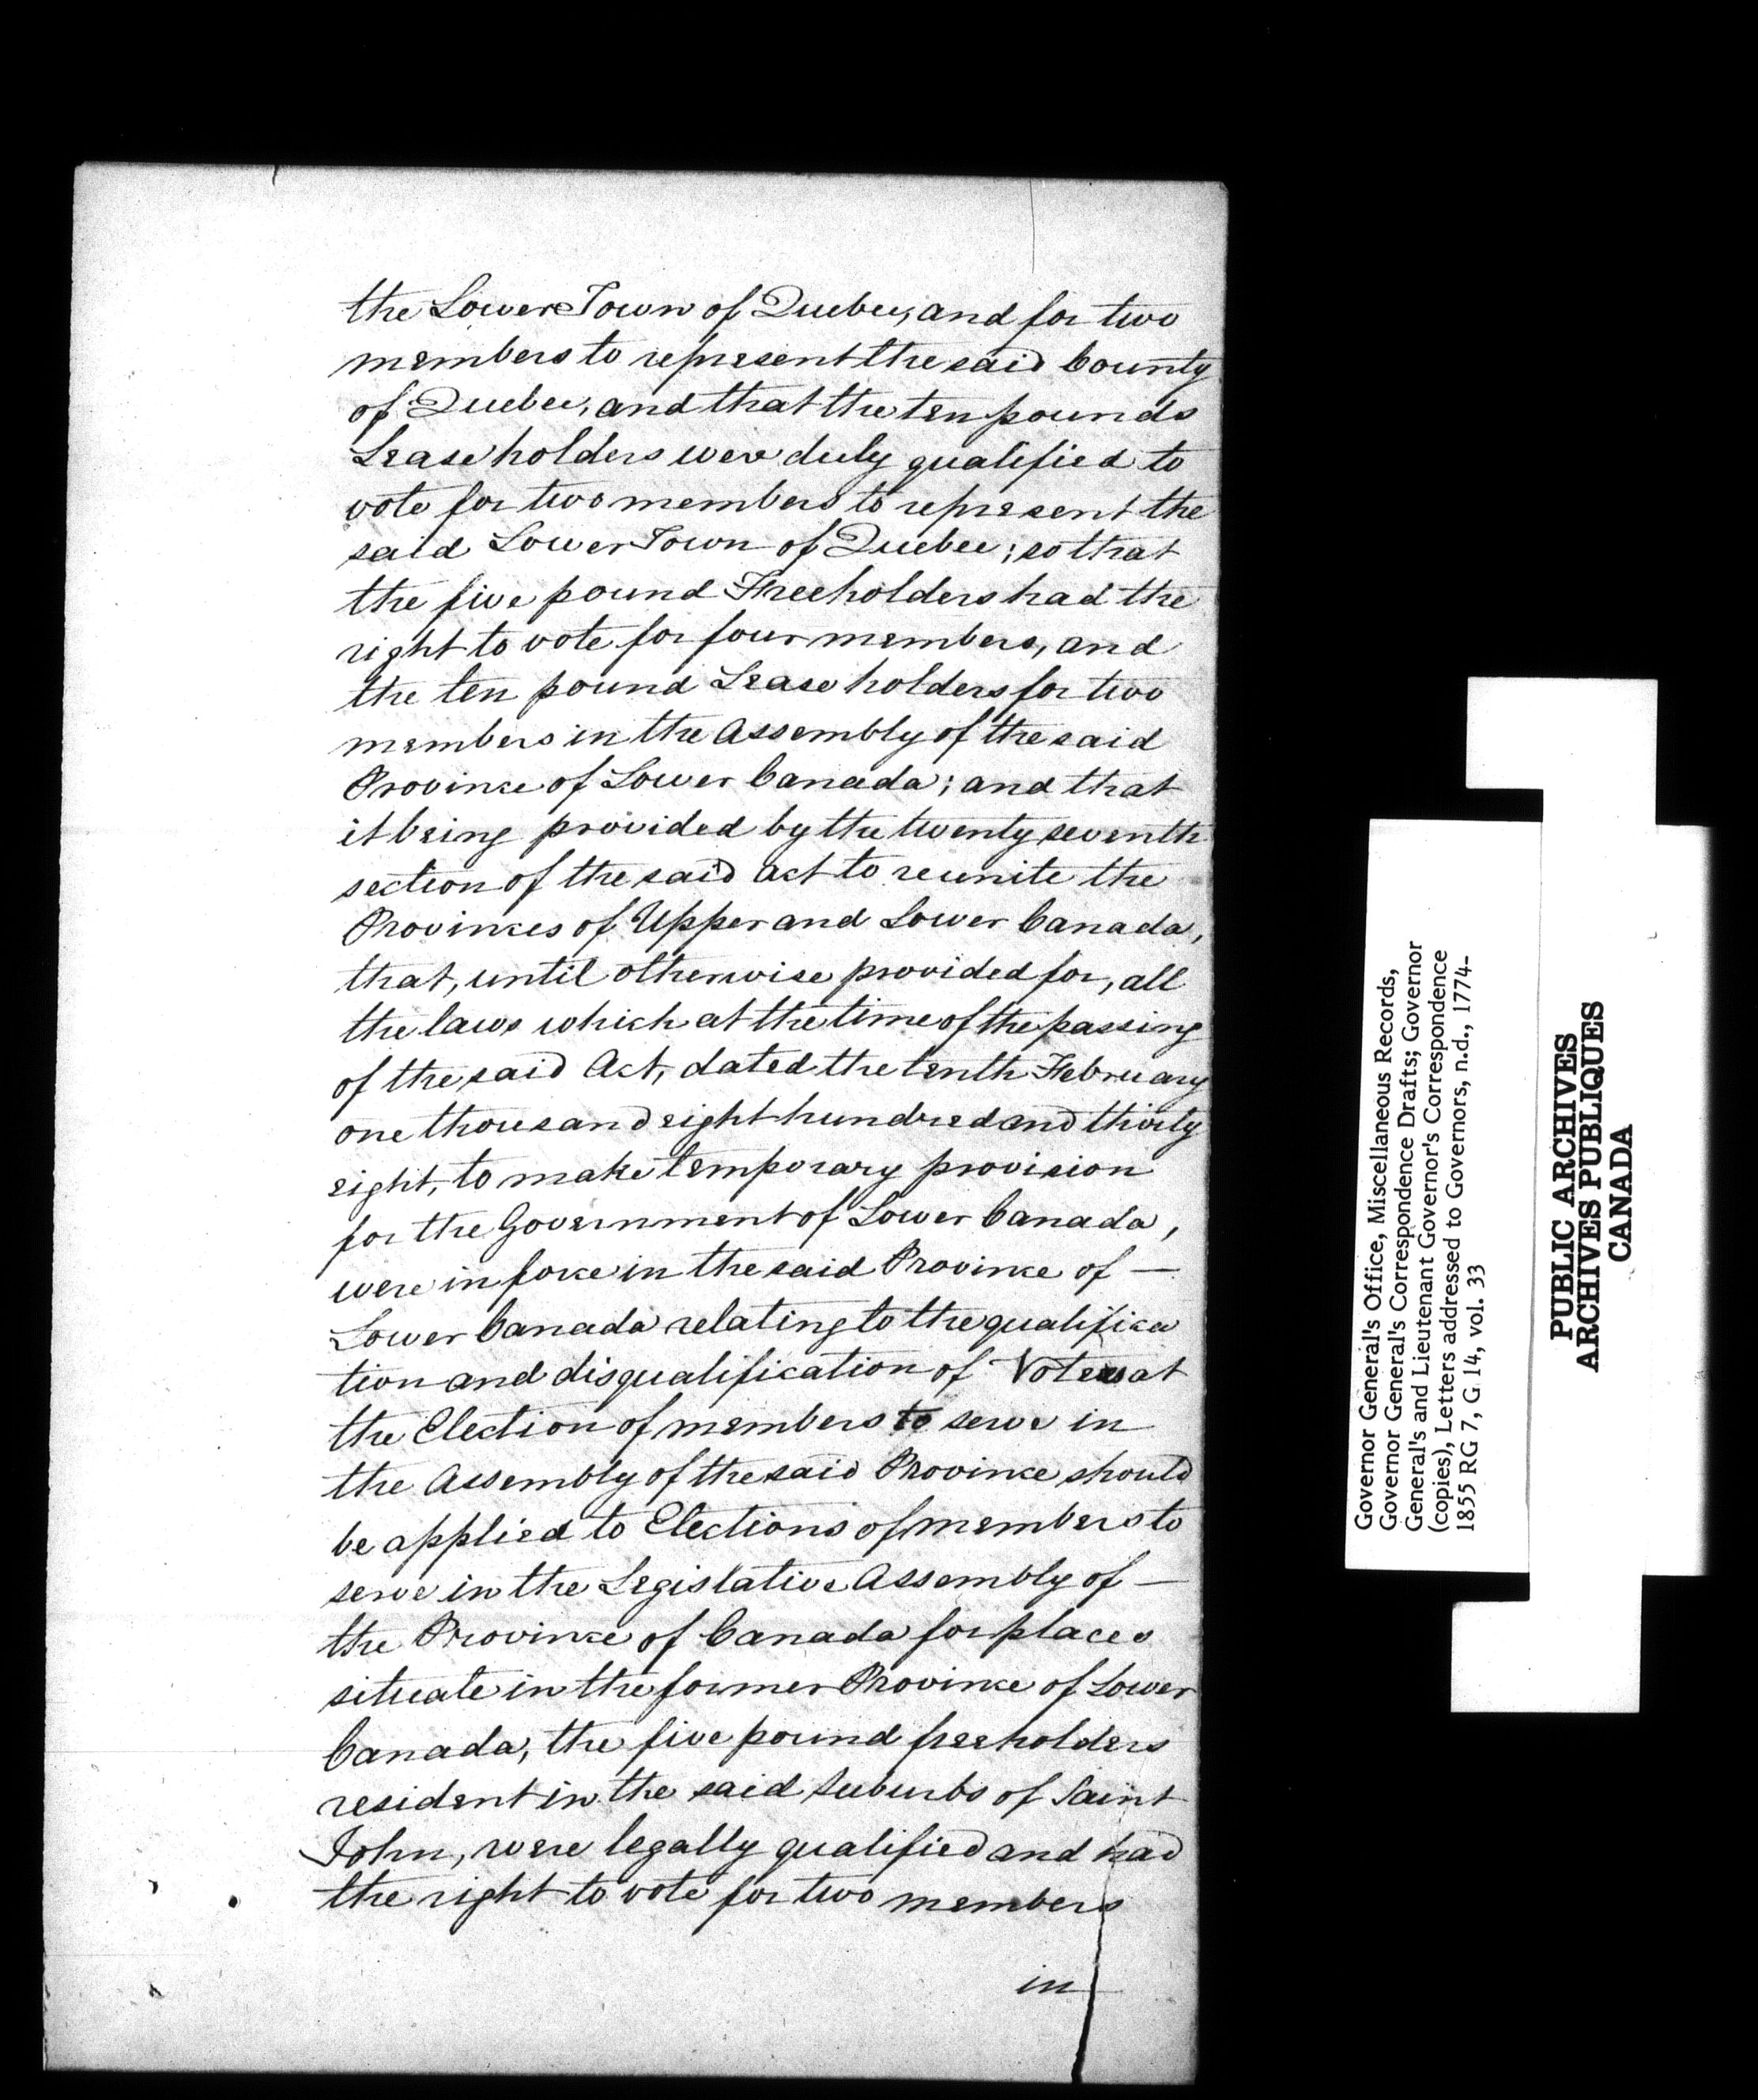 the Lower Town of Quebec, and for two
members to represent the said County
of Quebec, and that the ten pounds
Lease holders were duly qualified to
vote for two members to represent the
said Lower Town of Quebec; so that
the five pound Freeholders had the
right to vote for four members, and
the ten pound Lease holders for two
members in the Assembly of the said
Province of Lower Canada; and that
it being provided by the twenty seventh
section of the said Act to reunite the
Provinces of Upper and Lower Canada,
that, until otherwise provided for, all
the laws which at the time of the passing
of the said Act, dated the tenth February
one thousand eight hundred and thirty
eight, to make temporary provision
for the Government of Lower Canada,
were in force in the said Province of —
Lower Canada relating to the qualifica
tion and disqualification of Voters at
the Election of members to serve in
the Assembly of the said Province should
be applied to Elections of members to
serve in the Legislative Assembly of —
the Province of Canada for places
situate in the former Province of Lower
Canada, the five pound freeholders
resident in the said Suburbs of Saint
John, were legally qualified and had
the right to vote for two members
in
Governor General's Office, Miscellaneous Records,
Governor General's Correspondence Drafts; Governor
General's and Lieutenant Governor's Correspondence
(copies), Letters addressed to Governors, n.d., 1774-
1855 RG 7, G 14, vol. 33
PUBLIC ARCHIVES
ARCHIVES PUBLIQUES
CANADA